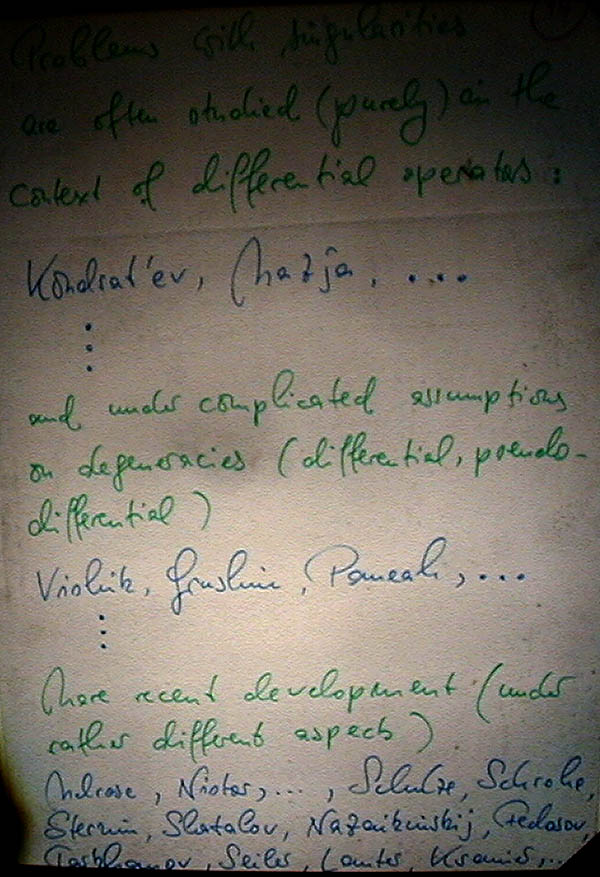 Problems with singularities
are often studied (purely) in the
context of differential operators:
Kondrat'ev, Mazja, ....
and under complicated assumptions
on degeneracies (differential, pseudo-
differential)
Višik, Grushin, Paneah, ...
More recent development (under
rather different aspects)
Melrose, Nistor, ..., Schulze, Schrohe,
Sternin, Shatalov, Nazaikinskij, Fedosov,
Tarkhanov, Seiler, ...